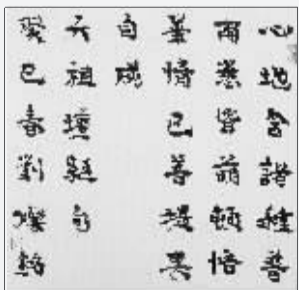 心地含諸種普
雨悉皆萌頓悟
華情已菩提果
自成
六祖壇經句
癸巳春劉燦銘